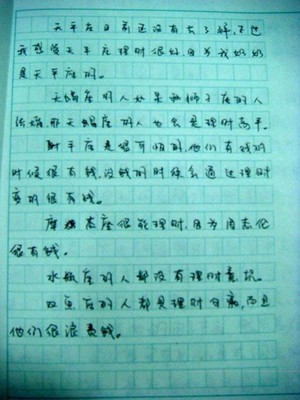 天平座目前还没有去了解，不过
我感觉天平座理财很好，因为我奶奶
是天平座的。
天蝎座的人如果和狮子座的人
结婚，那天蝎座的人也会是理财高手。
射手座是很有的，他们有钱的
时候很有钱，没钱的时候会通过理财
变的很有钱。
摩羯座很能理财，因为周杰伦
很有钱。
水瓶座的人都没有理财意识。
双鱼座的人都是理财白痴，而且
他们很浪费钱。